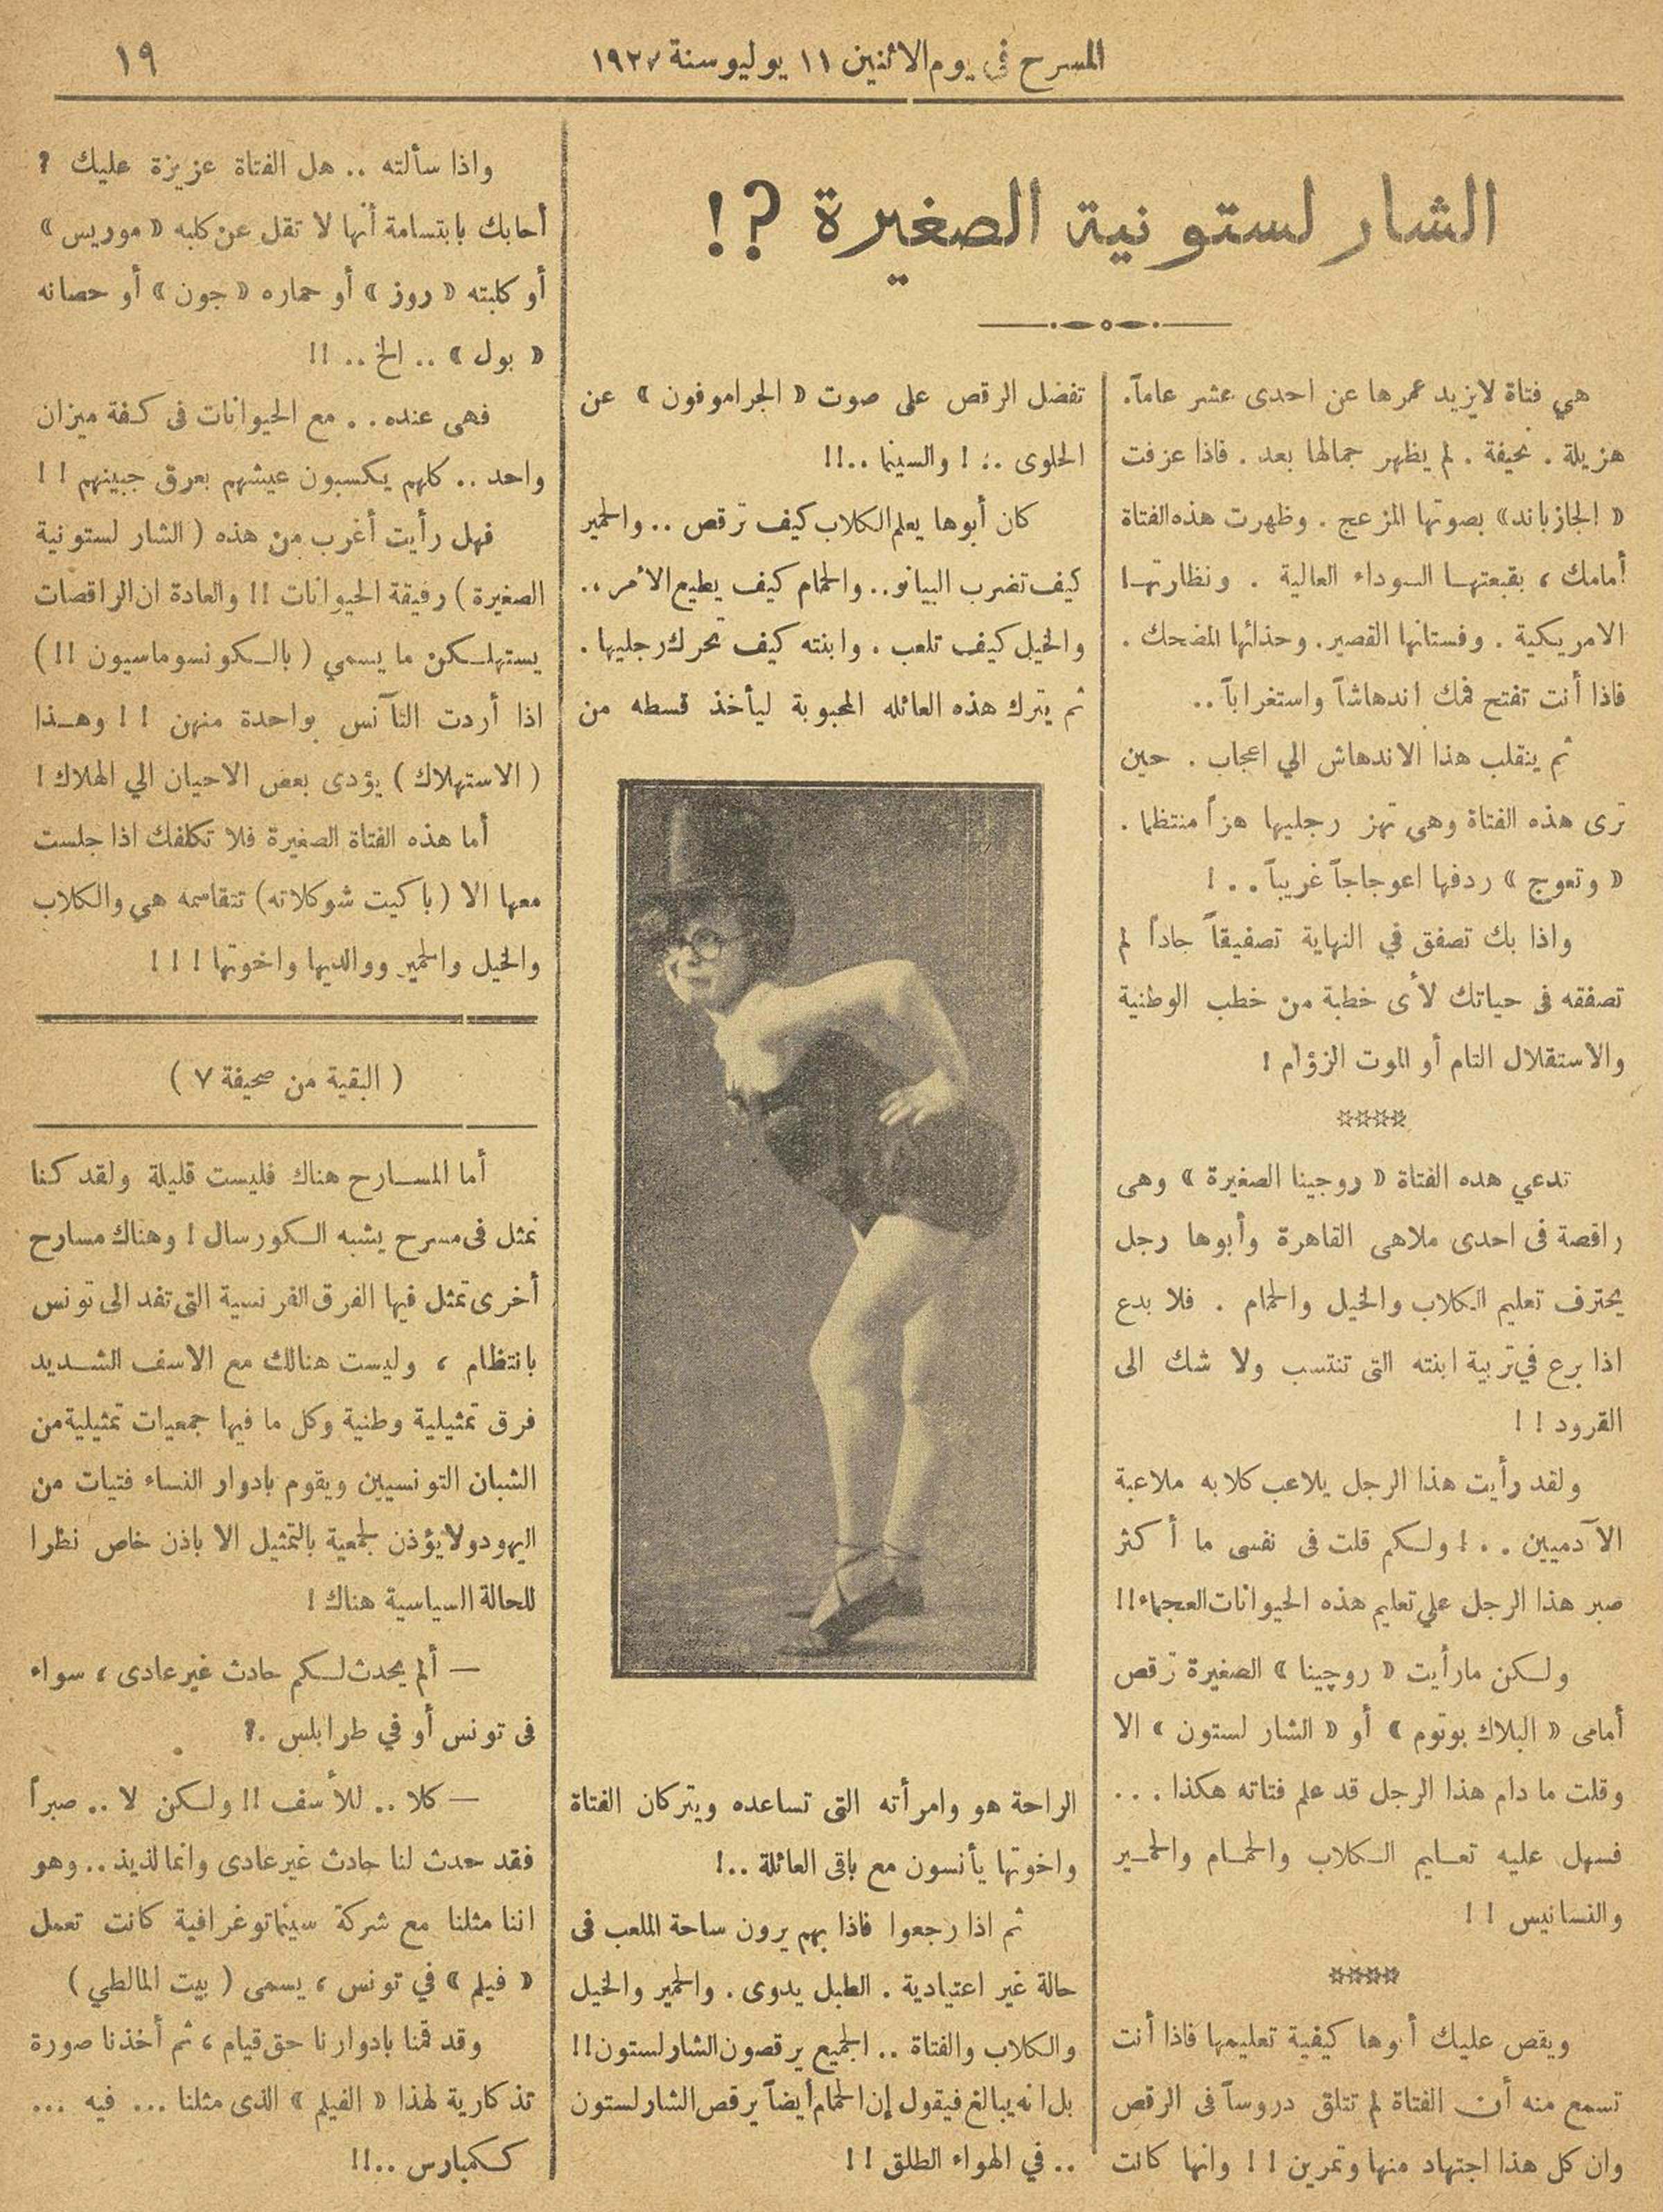 المسرح في يوم الاثنين ١١ يوليو سنة ١٩٢٧
١٩
الشارلستونية الصغيرة ؟!
هي فتاة لا يزيد عمرها عن احدى عشر عاماً.
هزيلة . نحيفة . لم يظهر جمالها بعد . فاذا عزفت
« الجازباند» بصوتها المزعج . وظهرت هذه الفتاة
أمامك ، بقبعتهـا السوداء العالية . ونظارتهـا
الامريكية . وفستانها القصير. وحذائها المضحك .
فاذا أنت تفتح فمك اندهاشاً واستغراباً ..
ثم ينقلب هذا الاندهاش الي اعجاب . حين
ترى هذه الفتاة وهى تهز رجليها هزاً منتظما .
« وتعوج » ردفها اعوجاجاً غريباً . . !
واذا بك تصفق في النهاية تصفيقاً جاداً لم
تصفقه فى حياتك لأى خطبة من خطب الوطنية
والاستقلال التام أو الموت الزؤام !
☆☆☆☆
تدعي هده الفتاة « روجينا الصغيرة » وهى
راقصة فى احدى ملاهى القاهرة وأبوها رجل
يحترف تعليم الكلاب والخيل والحمام . فلا بدع
اذا برع في تربية ابنته التى تنتسب ولا شك الى
القرود ! !
ولقد رأيت هذا الرجل يلاعب كلابه ملاعبة
الآدميين . . ! ولـكم قلت فى نفسى ما أكثر
صبر هذا الرجل علي تعليم هذه الحيوانات العجماء!!
ولـكن مارأيت « روچينا » الصغيرة ترقص
أمامى « البلاك بوتوم » أو « الشارلستون » الا
وقلت ما دام هذا الرجل قد علم فتاته هكذا . . .
فسهل عليه تعـليم الـكلاب والحمـام والحمـير
والنسانيس ! !
☆☆☆☆
ويقص عليك أبوها كيفية تعليمها فاذا أنت
تسمع منه أن الفتاة لم تتلق دروساً فى الرقص
وان كل هذا اجتهاد منها وتمرين ! ! وانها كانت
تفضل الرقص على صوت « الجراموفون » عن
الحلوى ..! والسينما ..!!
كان أبوها يعلم الكلاب كيف ترقص .. والحمير
كيف تضرب البيانو.. والحمام كيف يطيع الأمر ..
والخيل كيف تلعب . وابنته كيف تحرك رجليها .
ثم يترك هذه العائله المحبوبة ليأخذ قسطه من
الراحة هو وامرأته التى تساعده ويتركان الفتاة
واخوتها يأنسون مع باقى العائلة ..!
ثم اذا رجعوا فاذا بهم يرون ساحة الملعب فى
حالة غير اعتيادية . الطبل يدوى . والحمير والخيل
والكلاب والفتاة .. الجميع يرقصون الشارلستون!!
بل انه يبالغ فيقول إن الحمام أيضاً يرقص الشارلستون
.. في الهواء الطلق ! !
واذا سألته .. هل الفتاة عزيزة عليك ؟
أجابك بابتسامة أنها لا تقل عن كلبه « موريس»
أو كلبته « روز » أو حماره « جون » أو حصانه
« بول » .. الخ .. !!
فهى عنده . . مع الحيوانات فى كفة ميزان
واحد .. كلهم يكسبون عيشهم بعرق جبينهم ! !
فهل رأيت أغرب من هذه ( الشارلستونية
الصغيرة ) رفيقة الحيوانات !! والعادة ان الراقصات
يستهلـكن ما يسمي ( بالـكونسوماسيون !! )
اذا أردت التآنس بواحدة منهن ! ! وهـذا
( الاستهلاك ) يؤدى بعض الاحيان الي الهلاك !
أما هذه الفتاة الصغيرة فلا تكلفك اذا جلست
معها الا (باكيت شوكلاته) تتقاسمه هي والكلاب
والخيل والحمير ووالديها واخوتها ! ! !
( البقية من صحيفة ٧ )
أما المسـارح هناك فليست قليلة ولقد كنا
نمثل فى مسرح يشبه الـكورسال ! وهناك مسارح
أخرى تمثل فيها الفرق الفرنسية التى تفد الى تونس
بانتظام ، وليست هنالك مع الاسف الشـديد
فرق تمثيلية وطنية وكل ما فيها جمعيات تمثيلية من
الشبان التونسيين ويقوم بادوار النساء فتيات من
اليهود ولا يؤذن لجمعية بالتمثيل الا باذن خاص نظرا
للحالة السياسية هناك !
— ألم يحدث لـكم حادث غير عادى ، سواء
فى تونس أو في طرابلس .؟
— كلا .. للأسف !! ولـكن لا .. صبراً
فقد حدث لنا حادث غير عادى وانما لذيذ .. وهو
اننا مثلنا مع شركة سينماتوغرافية كانت تعمل
« فيلم » في تونس ، يسمى ( بيت المالطي )
وقد قمنا بادوارنا حق قيام ، ثم أخذنا صورة
تذكارية لهذا « الفيلم » الذى مثلنا ... فيه ...
كـكمبارس ..!!